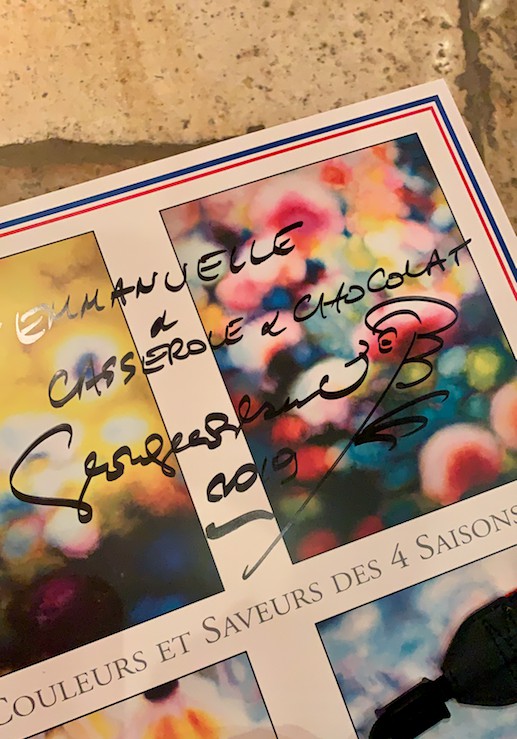 EMMANUELLE
&
CASSEROLE & CHOCOLAT
2019
COULEURS ET SAVEURS DES 4 SAISONS